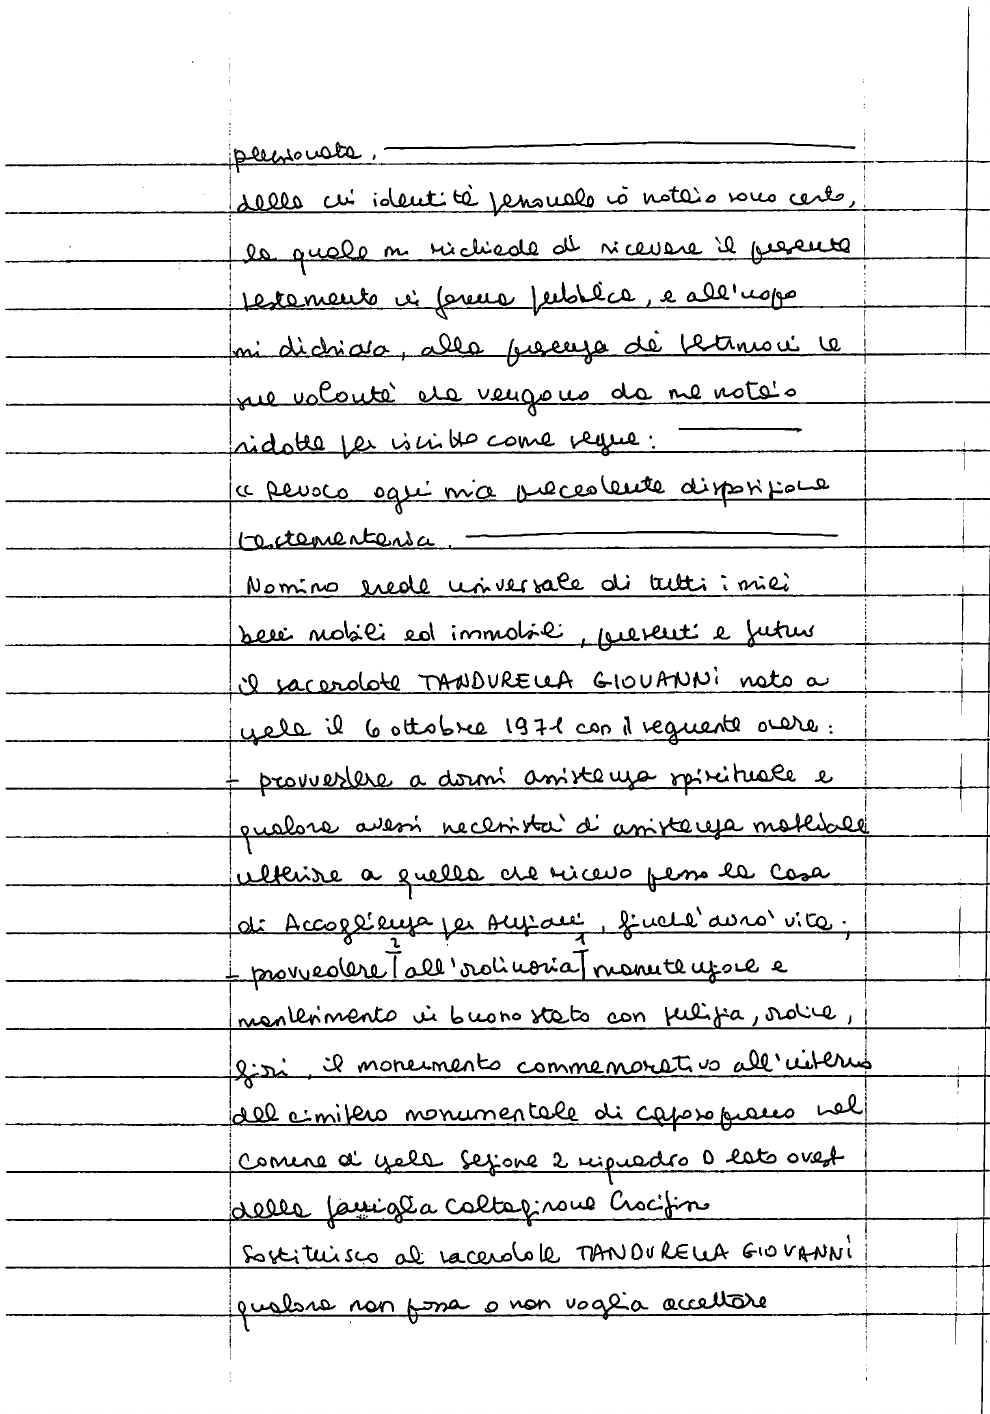 pensionata.
della cui identità personale io notaio sono certo,
la quale mi richiede di ricevere il presente
testamento in forma pubblica, e all'uopo
mi dichiara, alla presenza dei testimoni le
sue volontà che vengono da me notaio
ridotte per iscritto come segue:
"Revoco ogni mia precedente disposizione
testamentaria.
Nomino erede universale di tutti i miei
beni mobili ed immobili, presenti e futuri
il sacerdote TANDURELLA GIOVANNI nato a
Gela il 6 ottobre 1971 con il seguente onere:
- provvedere a darmi assistenza spirituale e
qualora avessi necessità di assistenza materiale
ulteriore a quella che ricevo presso la Casa
di Accoglienza per Anziani, finché avrò vita;
2 1
- provvedere all'ordinaria manutenzione e
mantenimento in buono stato con pulizia, ordine,
fiori, il monumento commemorativo all'interno
del cimitero monumentale di Caposoprano nel
Comune di Gela Sezione 2 riquadro D lato ovest
della famiglia Caltagirone Crocifisso
Sostituisco al sacerdote TANDURELLA GIOVANNI
qualora non possa o non voglia accettare